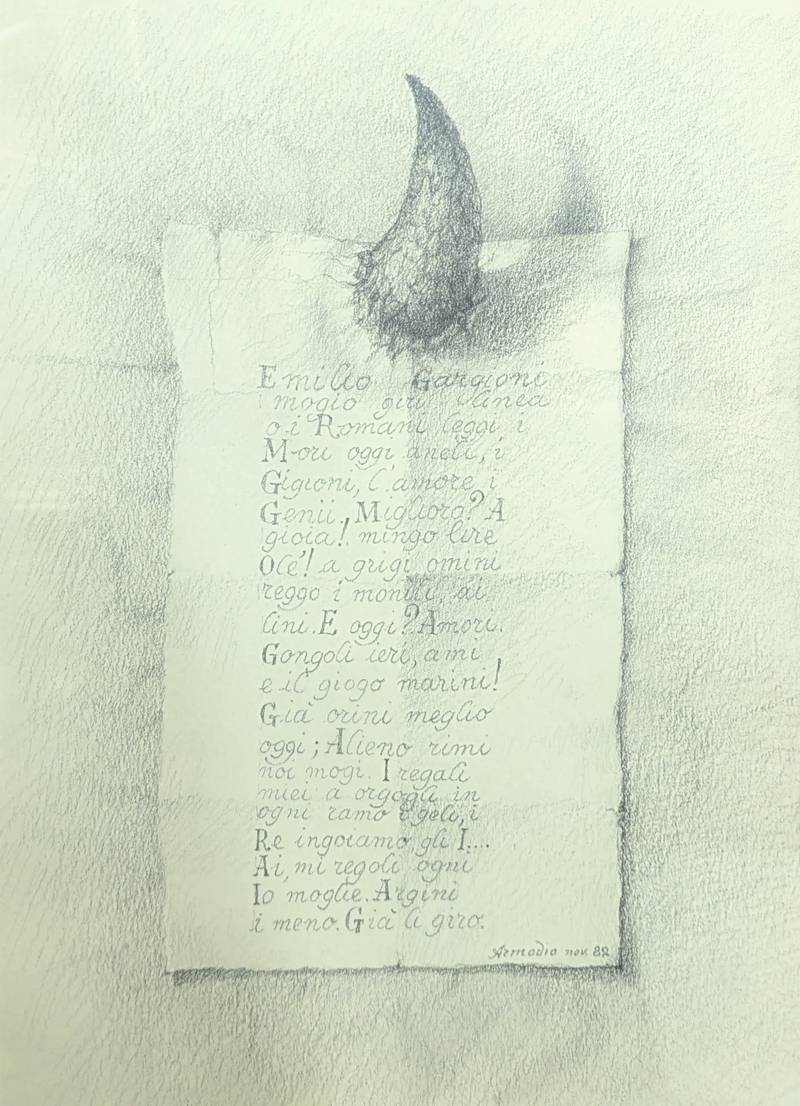 Emilio Gargioni
mogio giri linea
o i Romani leggi i
Mori oggi aneli, i
Gigioni, l'amore i
Genii. Miglioro? A
gioia! mingo lire
Olé! a grigi omini
reggo i monili, ai
lini. E oggi? Amori.
Gongoli ieri, ami
e il giogo marini!
Già orini meglio
oggi; Alieno rimi
noi mogi. I regali
miei a orgogli in
ogni ramo i geli, i
Re ingoiamo gli I....
Ai, mi regoli ogni
Io moglie. Argini
i meno. Già li giro.
Armodio nov. 82